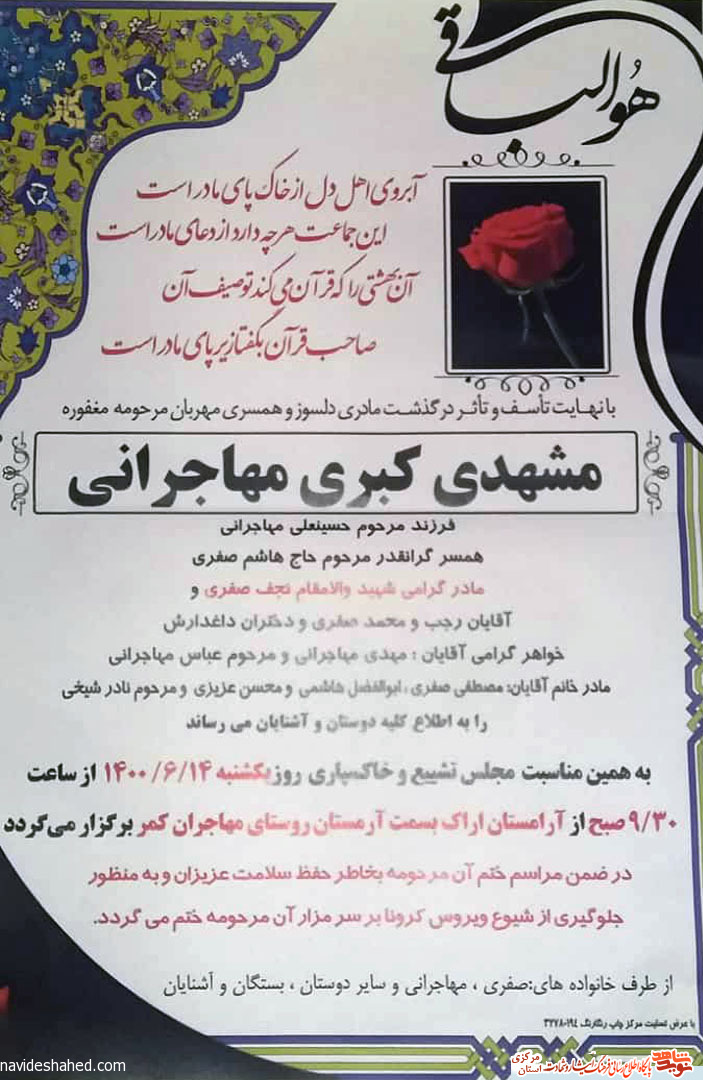 هوالباقی
آبروی اهل دل از خاک پای مادر است
این جماعت هرچه دارد از دعای مادر است
آن بهشتی را که قرآن می کند توصیف آن
صاحب قرآن بگفتا زیر پای مادر است
با نهایت تأسف و تأثر درگذشت مادری دلسوز و همسری مهربان مرحومه مغفوره
مشهدی کبری مهاجرانی
فرزند مرحوم حسینعلی مهاجرانی
همسر گرانقدر مرحوم حاج هاشم صفری
مادر گرامی شهید والامقام نجف صفری و
آقایان رجب و محمد صفری و دختران داغدارش
خواهر گرامی آقایان : مهدی مهاجرانی و مرحوم عباس مهاجرانی
مادر خانم آقایان: مصطفی صفری ، ابوالفضل هاشمی و محسن عزیزی و مرحوم نادر شیخی
را به اطلاع کلیه دوستان و آشنایان می رساند
به همین مناسبت مجلس تشییع و خاکسپاری روز یکشنبه ۱۴۰۰/۶/۱۴ از ساعت
۹/۳۰ صبح از آرامستان اراک بسمت آرمستان روستای مهاجران کمر برگزار می گردد
در ضمن مراسم ختم آن مرحومه بخاطر حفظ سلامت عزیزان و به منظور
جلوگیری از شیوع ویروس کرونا بر سر مزار آن مرحومه ختم می گردد.
از طرف خانواده های:صفری ، مهاجرانی و سایر دوستان ، بستگان و آشنایان
با عرض تسلیت مرکز چاپ رنگارنگ ۱۹۴-۳۲۷۸
نوید شاهد پایگاه اطلاع رسانی فرهنگ ایثار و شهادت استان مرکزی
navideshahed.com